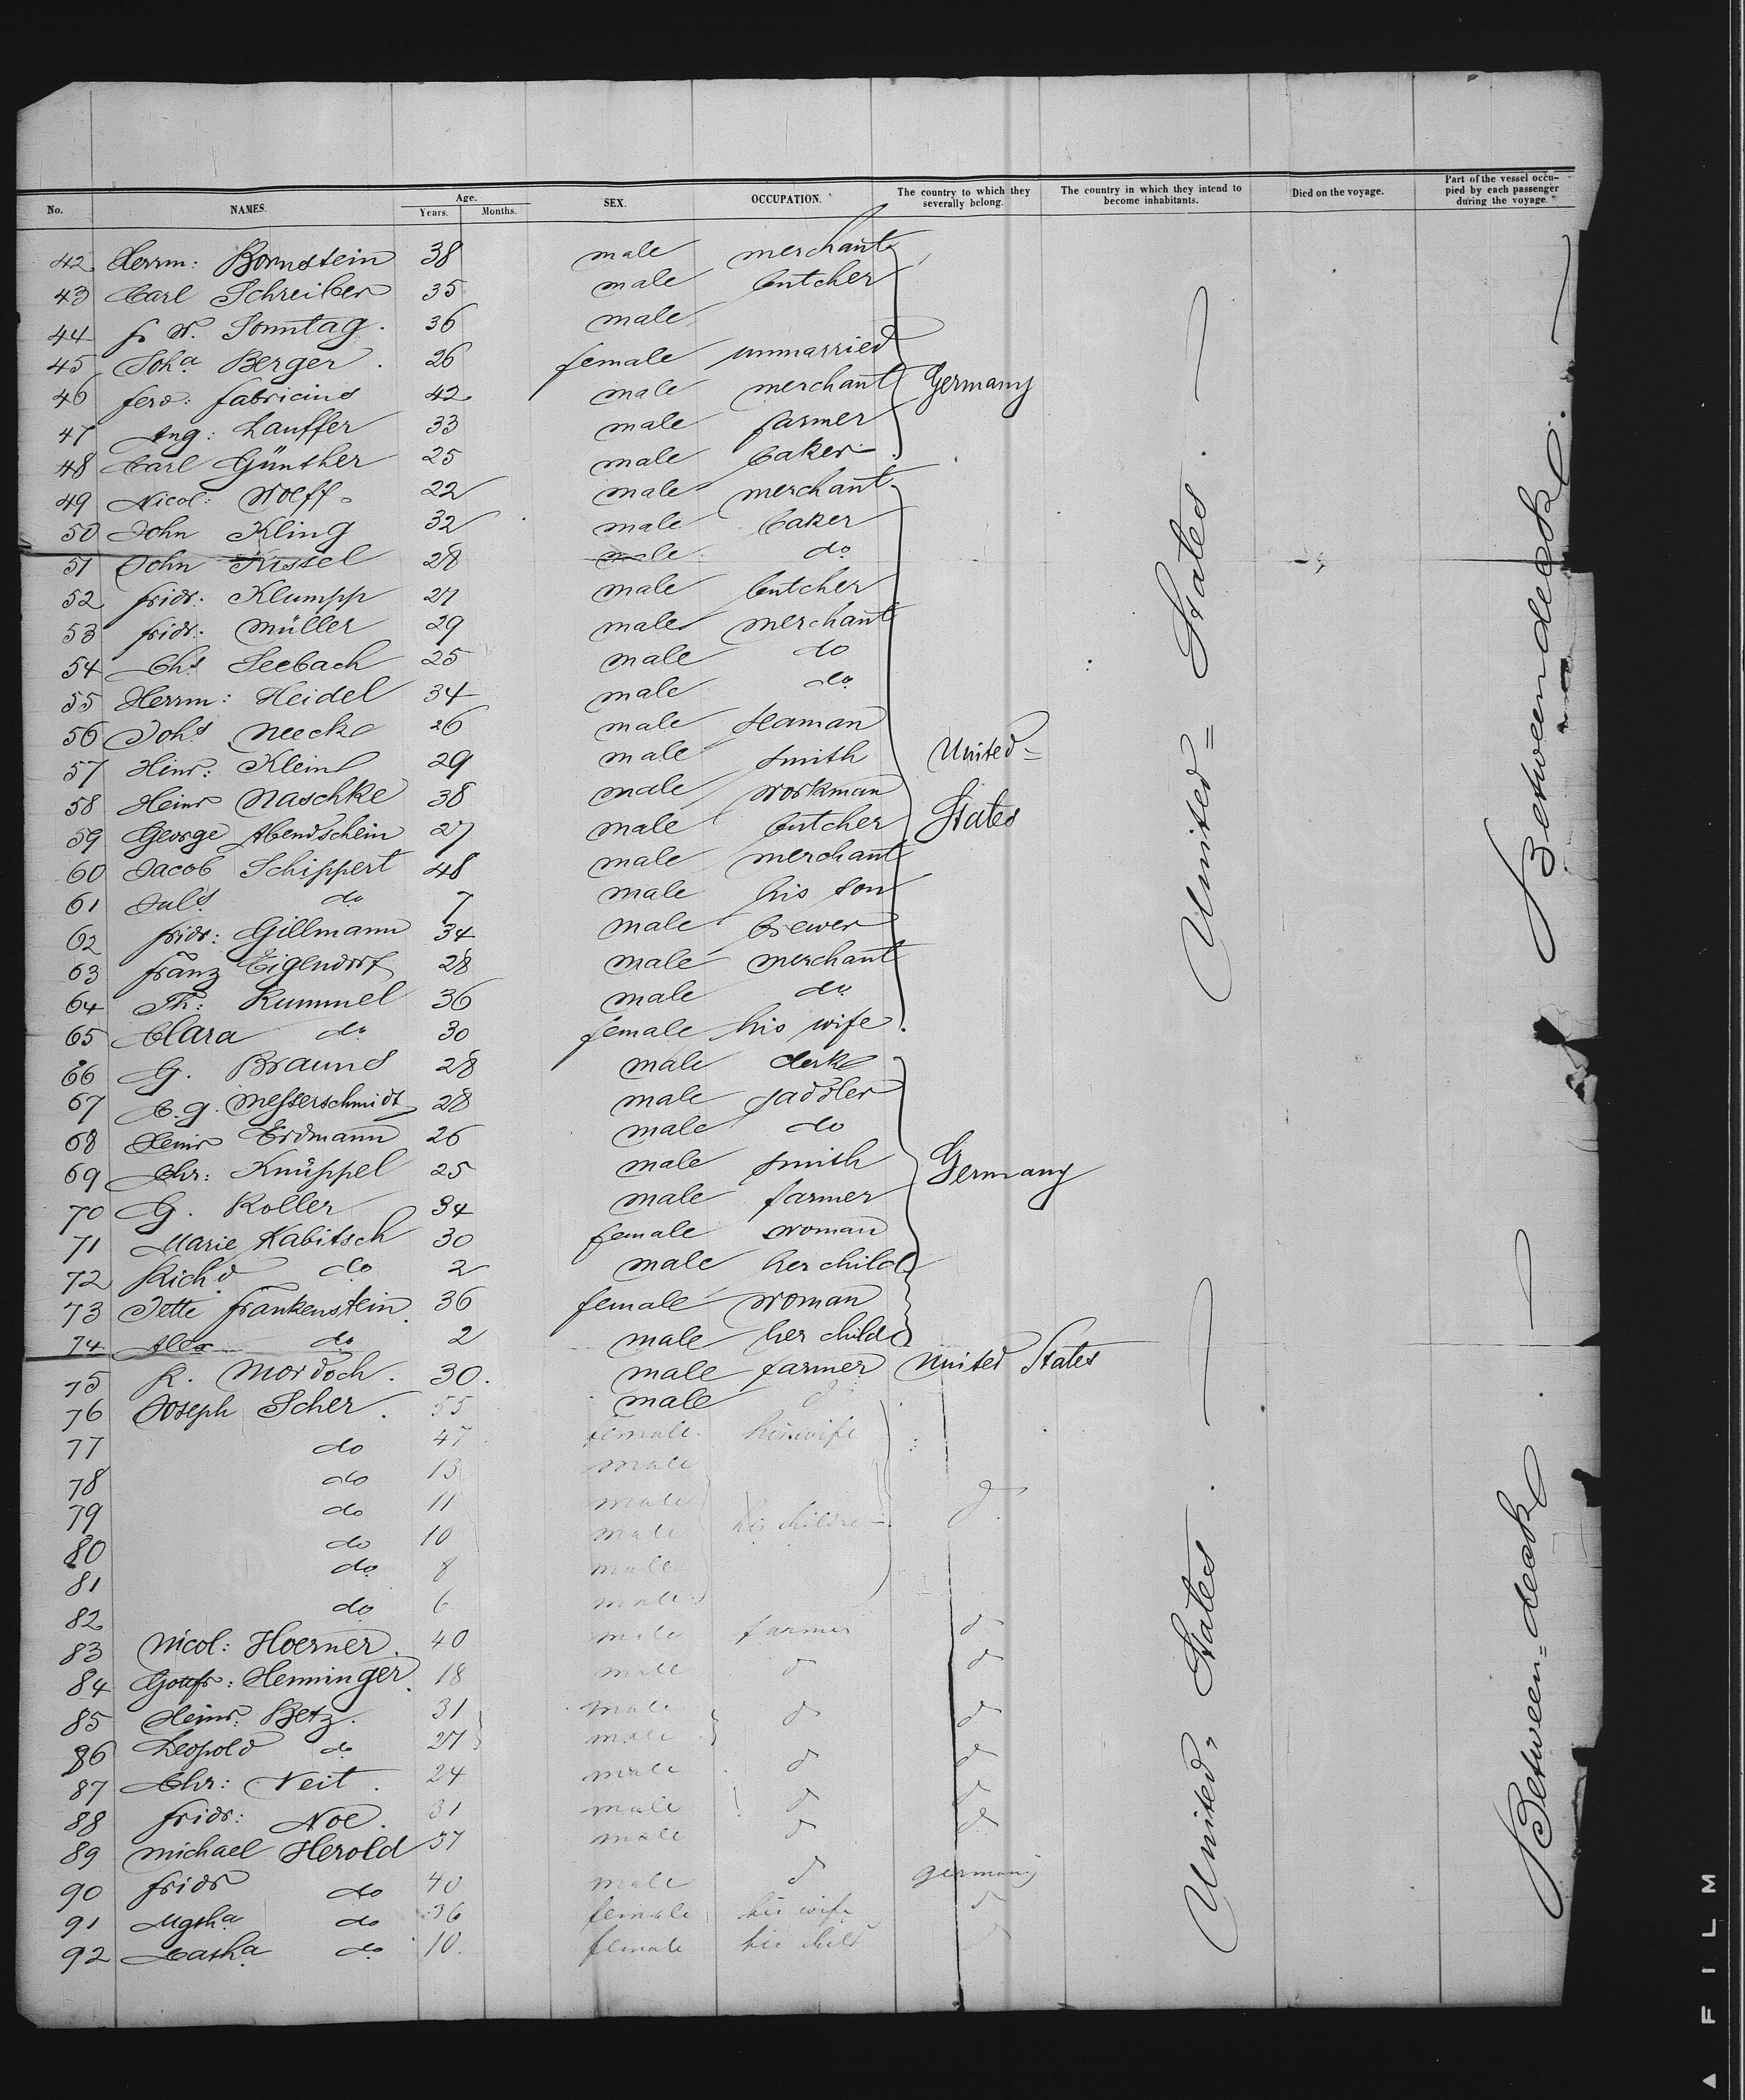 No. NAMES. Age. Years. Months. SEX. OCCUPATION. The country to which they severally belong. The country in which they intend to become inhabitants. Died on the voyage. Part of the vessel occupied by each passenger during the voyage.
42 Herrm: Bornstein 38 male merchant
43 Carl Schreiber 35 male butcher
44 Fr W. Sonntag. 36 male
45 Joha Berger. 26 female unmarried
46 Ferd: Fabricius 42 male merchant Germany
47 Aug: Lauffer 33 male farmer
48 Carl Günther 25 male baker
49 Nicol: Wolff 22 male merchant
50 John Kling 32 male baker
51 John Kissel 28 male do
52 Fridr. Klumpp 27 male butcher
53 Fridr. Müller 29 male merchant
54 Chs Seebach 25 male do
55 Herrm: Heidel 34 male do
56 Johs Meeck 26 male seaman
57 Hinr: Klein 29 male smith United-
58 Heinr Maschke 38 male workman
59 George Abendschein 27 male butcher States
60 Jacob Schippert 48 male merchant
61 Juls do 7 male his son
62 Fridr: Gillmann 34 male brewer
63 Franz Eigendorf 28 male merchant
64 Th: Rummel 36 male do
65 Clara do 30 female his wife
66 G. Brauns 28 male clerk
67 C. G. Messerschmidt 28 male saddler
68 Heinr Erdmann 26 male do
69 Chr: Knüppel 25 male smith Germany
70 G. Roller 34 male farmer
71 Marie Kabitsch 30 female woman
72 Richd do 2 male her child
73 Jette Frankenstein 36 female woman
74 Alex do 2 male her child
75 R. Mordoch. 30. male farmer United States
76 Joseph Scher. 55 male d
77 do 47 female his wife
78 do 13 male
79 do 11 male d
80 do 10 male his children
81 do 8 male
82 do 6 male
83 Nicol: Hoerner. 40 male farmer d
84 Gottfr: Henninger. 18 male d d
85 Heinr: Betz. 31 male d d
86 Leopold do 27 male
87 Chr: Veit. 24 male d d
88 Fridr: Noe. 31 male d d
89 Michael Herold 37 male d d
90 Fridr do 40 male d germany
91 Mgtha do 36 female his wife d
92 Catha do 10. female his child
United = States.
Betweendeck.
United = States.
Between=deck.
FILM